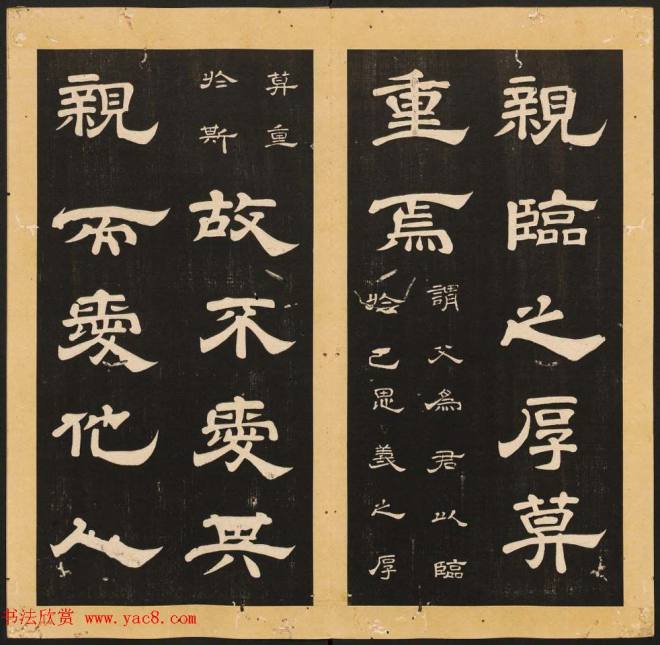 親臨之厚莫
重焉
謂父為君以臨
於己恩義之厚
莫重
於斯
故不愛其
親而愛他人
书法欣赏 www.yac8.com